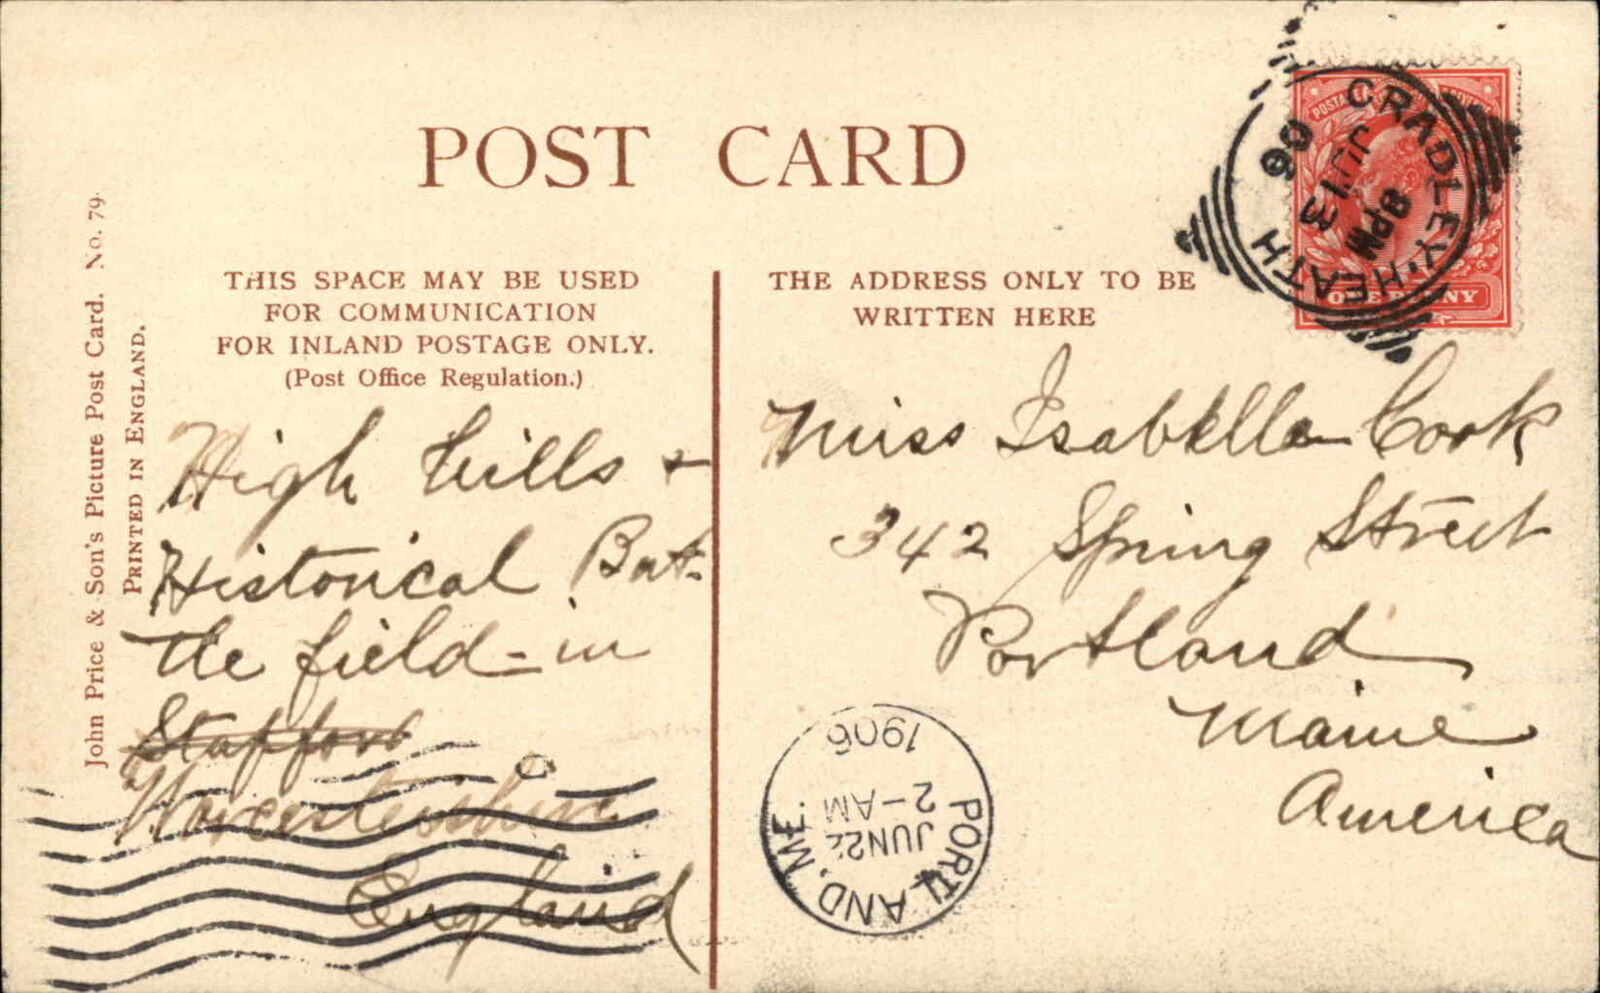 POST CARD
John Price & Son's Picture Post Card. No. 79.
PRINTED IN ENGLAND.
THIS SPACE MAY BE USED
FOR COMMUNICATION
FOR INLAND POSTAGE ONLY.
(Post Office Regulation.)
THE ADDRESS ONLY TO BE
WRITTEN HERE
CRADLEY·HEATH
8PM
JU 13
06
ONE PENNY
High hills &
Historical Bat-
tle field - in
Stafford
Worcestershire
England
Miss Isabella Cook
342 Spring Street
Portland
Maine
America
PORTLAND, ME.
JUN 22
2-AM
1906